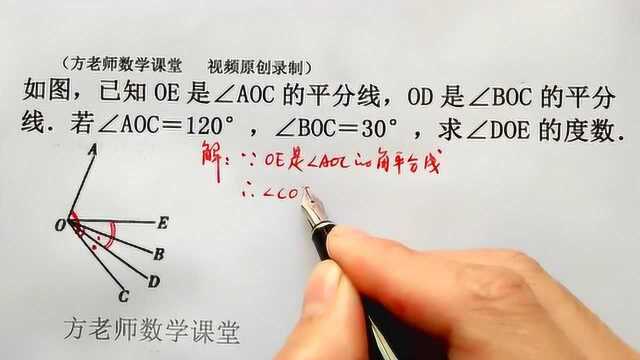 （方老师数学课堂 视频原创录制）
如图，已知 OE 是∠AOC 的平分线，OD 是∠BOC 的平分
线．若∠AOC＝120°，∠BOC＝30°，求∠DOE 的度数．
解：∵ OE是∠AOC的角平分线
∴ ∠CO
A
O
E
B
D
C
方老师数学课堂